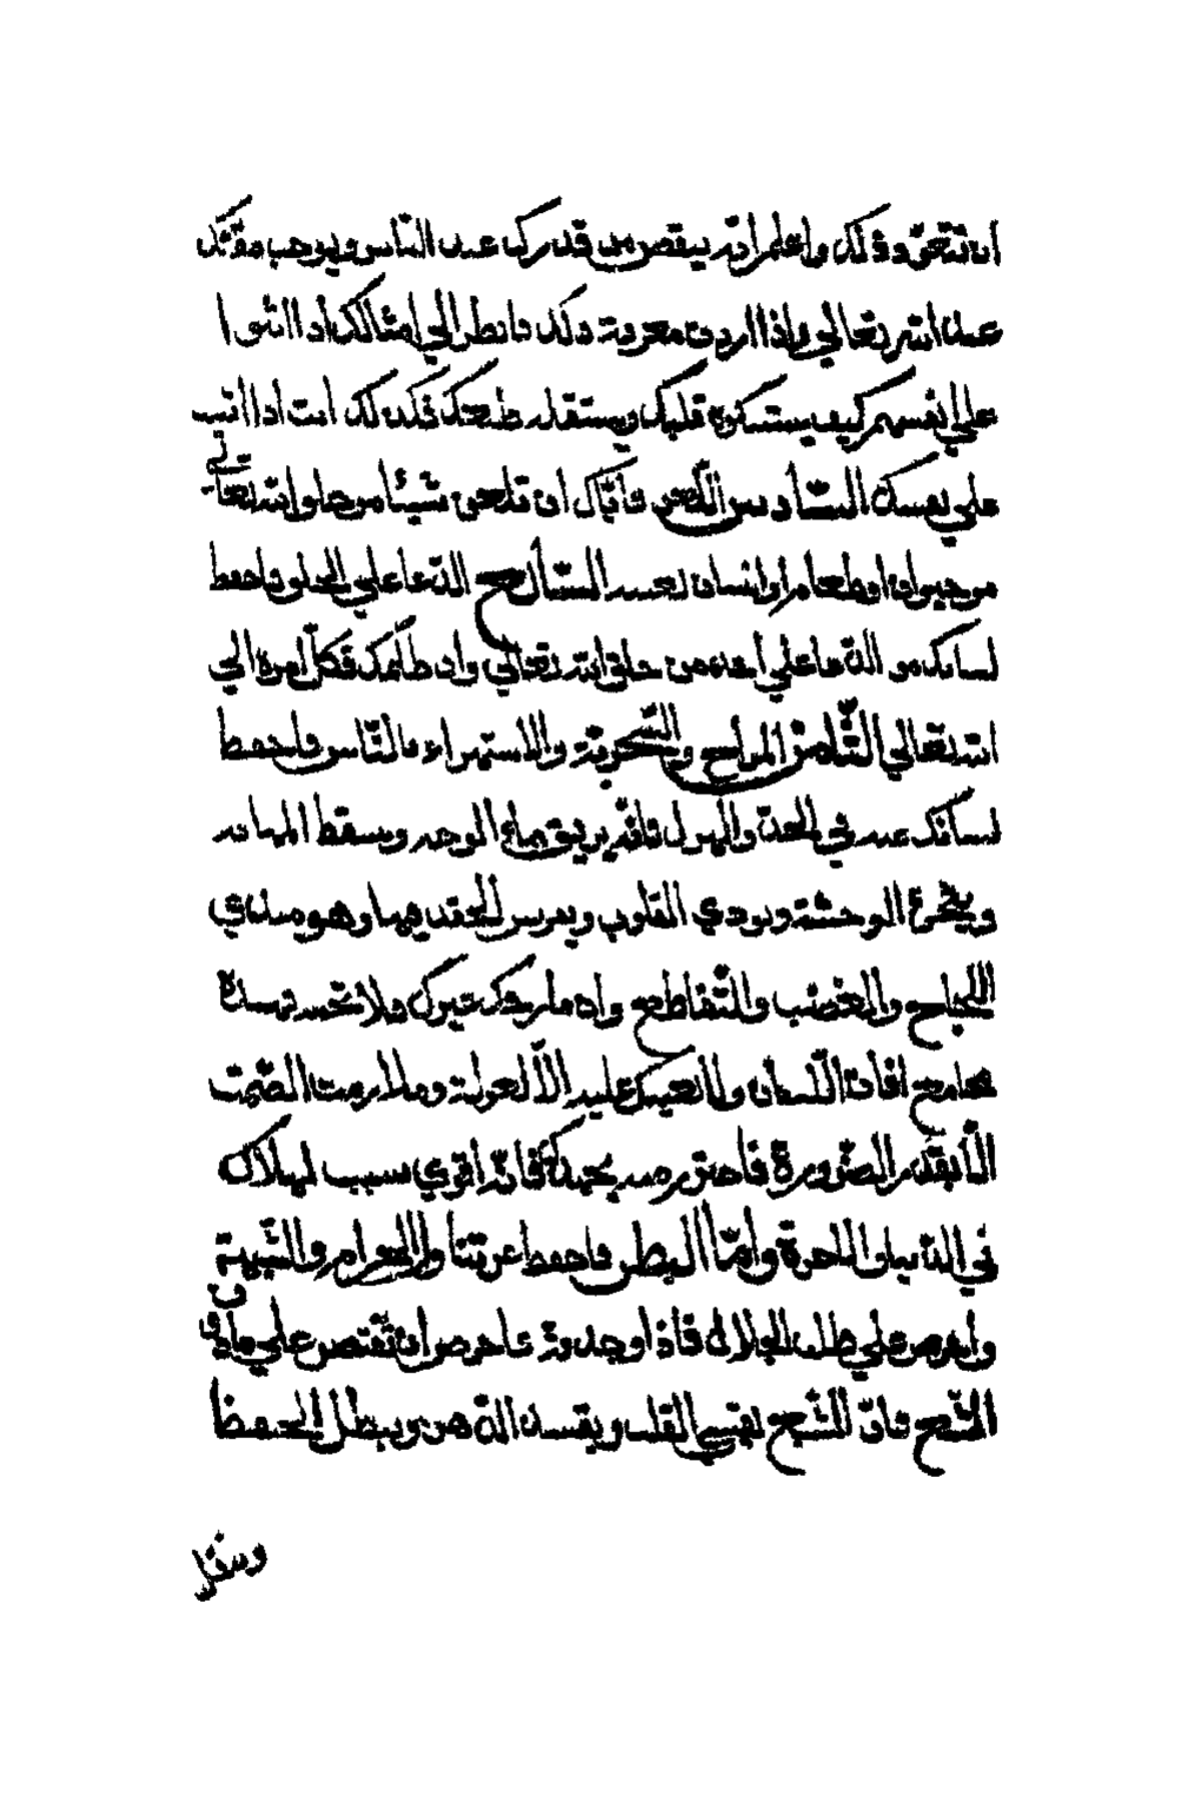 ان تتعود ذلك واعلم انه ينقص من قدرك عند الناس ويوجب مقتك
عند الله تعالي واذا اردت معرفة ذلك فانظر الي امثالك اذا اثنوا
علي انفسهم كيف يستنكره قلبك ويستثقله طبعك فكذلك انت اذا اثنيت
علي نفسك السادس اللعن فاياك ان تلعن شيئا مما خلق الله تعالي
من حيوان او طعام او انسان بعينه السابع الدعا علي الخلق فاحفظ
لسانك من الدعا علي احد من خلق الله تعالي وان ظلمك فكل امره الي
الله تعالي الثامن المزاح والسخرية والاستهزاء بالناس فاحفظ
لسانك عنه في الجد والهزل فانه يريق ماء الوجه ويسقط المهابه
ويستجر الوحشة ويوذي القلوب ويغرس الحقد فيها وهو مبداي
اللجاج والغضب والتقاطع وان مازحك غيرك فلا تجبه فهذه
مجامع افات اللسان ولا يعينك عليه الا العزلة وملازمت الصمت
الا بقدر الضرورة فاحترز منه بجهدك فانه اقوي سبب لهلاك
في الدنيا والاخرة واما البطن فاحفظ عن تناول الحرام والشبهة
واحرص علي طلب الحلال فاذا وجدته فاحرص ان تقتصر علي ما دون
الشبع فان الشبع يقسي القلب ويفسد الذهن ويبطل الحفظ
ويثقل